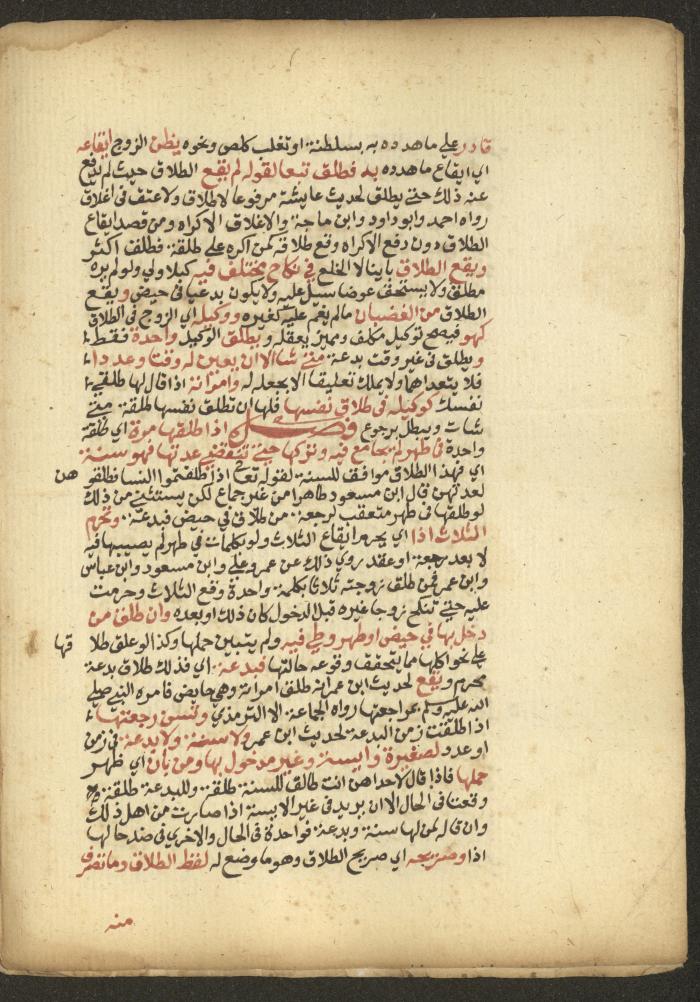 قادر على ما هدده به بسلطنة او تغلب كلص ونحوه يظن الزوج ايقاعه
اي ايقاع ما هدده به فطلق تبعا لقوله لم يقع الطلاق حيث لم يرفع
عنه ذلك حتى يطلق لحديث عايشة مرفوعا لا طلاق ولا عتق في اغلاق
رواه احمد وابو داود وابن ماجة والاغلاق الاكراه ومن قصد ايقاع
الطلاق دون دفع الاكراه وقع طلاقه كمن اكره على طلقة فطلق اكثر
ويقع الطلاق باينا لا الخلع في نكاح مختلف فيه كبلا ولي ولو لم يره
مطلق ولا يستحق عوضا سيل عليه ولا يكون بدعيا في حيض ويقع
الطلاق من الغضبان ما لم يغم عليه كغيره ووكيله اي الزوج في الطلاق
كهو فيصح توكيل مكلف ومميز يعقله ويطلق الوكيل واحدة فقط
ويطلق في غير وقت بدعة متى شا الا ان يعين له وقتا وعددا
فلا يتعداهما ولا يملك تعليقا الا بجعله له وامراته اذا قال لها طلقي
نفسك كوكيله في طلاق نفسها فلها ان تطلق نفسها طلقة متى
شات ويبطل برجوع فصل اذا طلقها مرة اي طلقة
واحدة في طهر لم يجامع فيه وتركها حتى تنقضي عدتها فهو سنة
اي فهذا الطلاق موافق للسنة لقوله تعالى اذا طلقتموا النسا فطلقوهن
لعدتهن قال ابن مسعود طاهرا من غير جماع لكن يستثنى من ذلك
لو طلقها في طهر متعقب لرجعة من طلاق في حيض فبدعة وتحرم
الثلاث اذا اي يحرم ايقاع الثلاث ولو بكلمات في طهر لم يصيبها فيه
لا بعد رجعة او عقد روي ذلك عن عمر وعلي وابن مسعود وابن عباس
وابن عمر فمن طلق زوجته ثلاثا بكلمة واحدة وقع الثلاث وحرمت
عليه حتى تنكح زوجا غيره قبل الدخول كان ذلك او بعده وان طلق من
دخل بها في حيض او طهر وطي فيه ولم يتبين حملها وكذا لو علق طلاقها
على نحو اكلها مما يتحقق وقوعه حالتها فبدعة اي فذلك طلاق بدعة
محرم ويقع لحديث ابن عمر انه طلق امراته وهي حايض فامره النبي صلى
الله عليه وسلم بمراجعتها رواه الجماعة الا الترمذي وتسن رجعتها
اذا طلقت زمن البدعة لحديث ابن عمر ولا سنة ولا بدعة في زمن
او عدد لصغيرة وايسة وغير مدخول بها ومن بان اي ظهر
حملها فاذا قال لاحداهن انت طالق للسنة طلقة وللبدعة طلقة
وقعتا في الحال الا ان يريد في غير الايسة اذا صارت من اهل ذلك
وان قاله لمن لها سنة وبدعة فواحدة في الحال والاخرى في ضد حالها
اذا وصريحه اي صريح الطلاق وهو ما وضع له لفظ الطلاق وما تصرف
منه